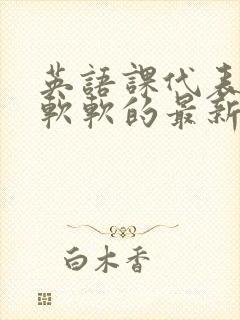 英語課代表
軟軟的最新
白木香